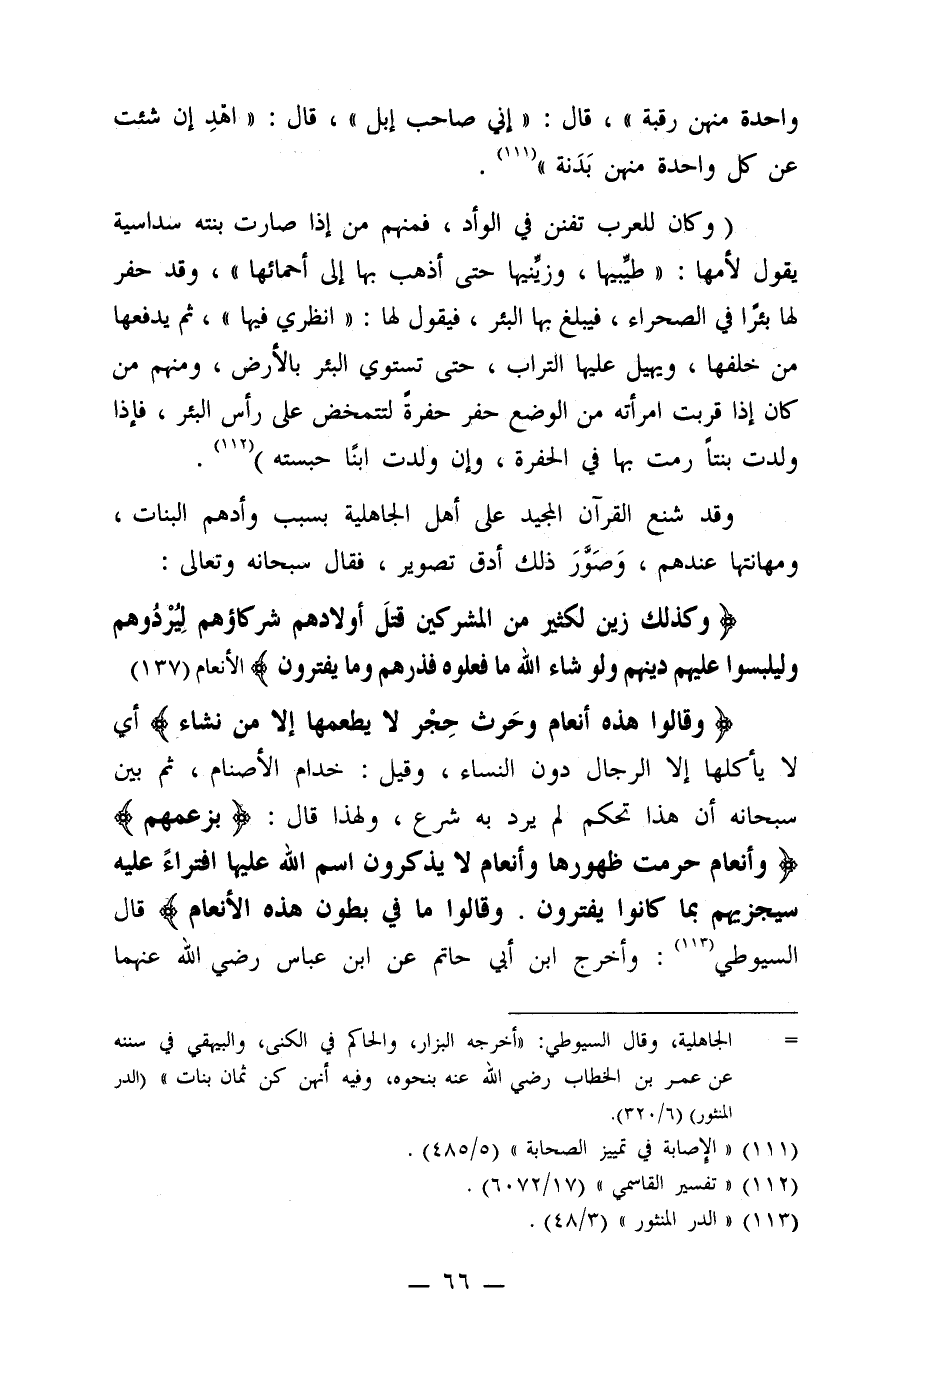 واحدة منهن رقبة » ، قال : « إني صاحب إبل » ، قال : « اهْدِ إن شئت
عن كل واحدة منهن بَدَنة »(١١١) .
( وكان للعرب تفنن في الوأد ، فمنهم من إذا صارت بنته سداسية
يقول لأمها : « طيِّبيها ، وزيِّنيها حتى أذهب بها إلى أحمائها » ، وقد حفر
لها بئرًا في الصحراء ، فيبلغ بها البئر ، فيقول لها : « انظري فيها » ، ثم يدفعها
من خلفها ، ويهيل عليها التراب ، حتى تستوي البئر بالأرض ، ومنهم من
كان إذا قربت امرأته من الوضع حفر حفرةً لتتمخض على رأس البئر ، فإذا
ولدت بنتاً رمت بها في الحفرة ، وإن ولدت ابنًا حبسته )(١١٢) .
وقد شنع القرآن المجيد على أهل الجاهلية بسبب وأدهم البنات ،
ومهانتها عندهم ، وَصَوَّرَ ذلك أدق تصوير ، فقال سبحانه وتعالى :
﴿ وكذلك زين لكثير من المشركين قتلَ أولادهم شركاؤهم لِيُرْدُوهم
وليلبسوا عليهم دينهم ولو شاء الله ما فعلوه فذرهم وما يفترون ﴾ الأنعام (١٣٧)
﴿ وقالوا هذه أنعام وحَرث حِجْر لا يطعمها إلا من نشاء ﴾ أي
لا يأكلها إلا الرجال دون النساء ، وقيل : خدام الأصنام ، ثم بين
سبحانه أن هذا تحكم لم يرد به شرع ، ولهذا قال : ﴿ بزعمهم ﴾
﴿ وأنعام حرمت ظهورها وأنعام لا يذكرون اسم الله عليها افتراءً عليه
سيجزيهم بما كانوا يفترون . وقالوا ما في بطون هذه الأنعام ﴾ قال
السيوطي(١١٣) : وأخرج ابن أبي حاتم عن ابن عباس رضي الله عنهما
= الجاهلية، وقال السيوطي: «أخرجه البزار، والحاكم في الكنى، والبيهقي في سننه
عن عمر بن الخطاب رضي الله عنه بنحوه، وفيه أنهن كن ثمان بنات » (الدر
المنثور) (٣٢٠/٦).
(١١١) « الإصابة في تمييز الصحابة » (٤٨٥/٥) .
(١١٢) « تفسير القاسمي » (٦٠٧٢/١٧) .
(١١٣) « الدر المنثور » (٤٨/٣) .
— ٦٦ —